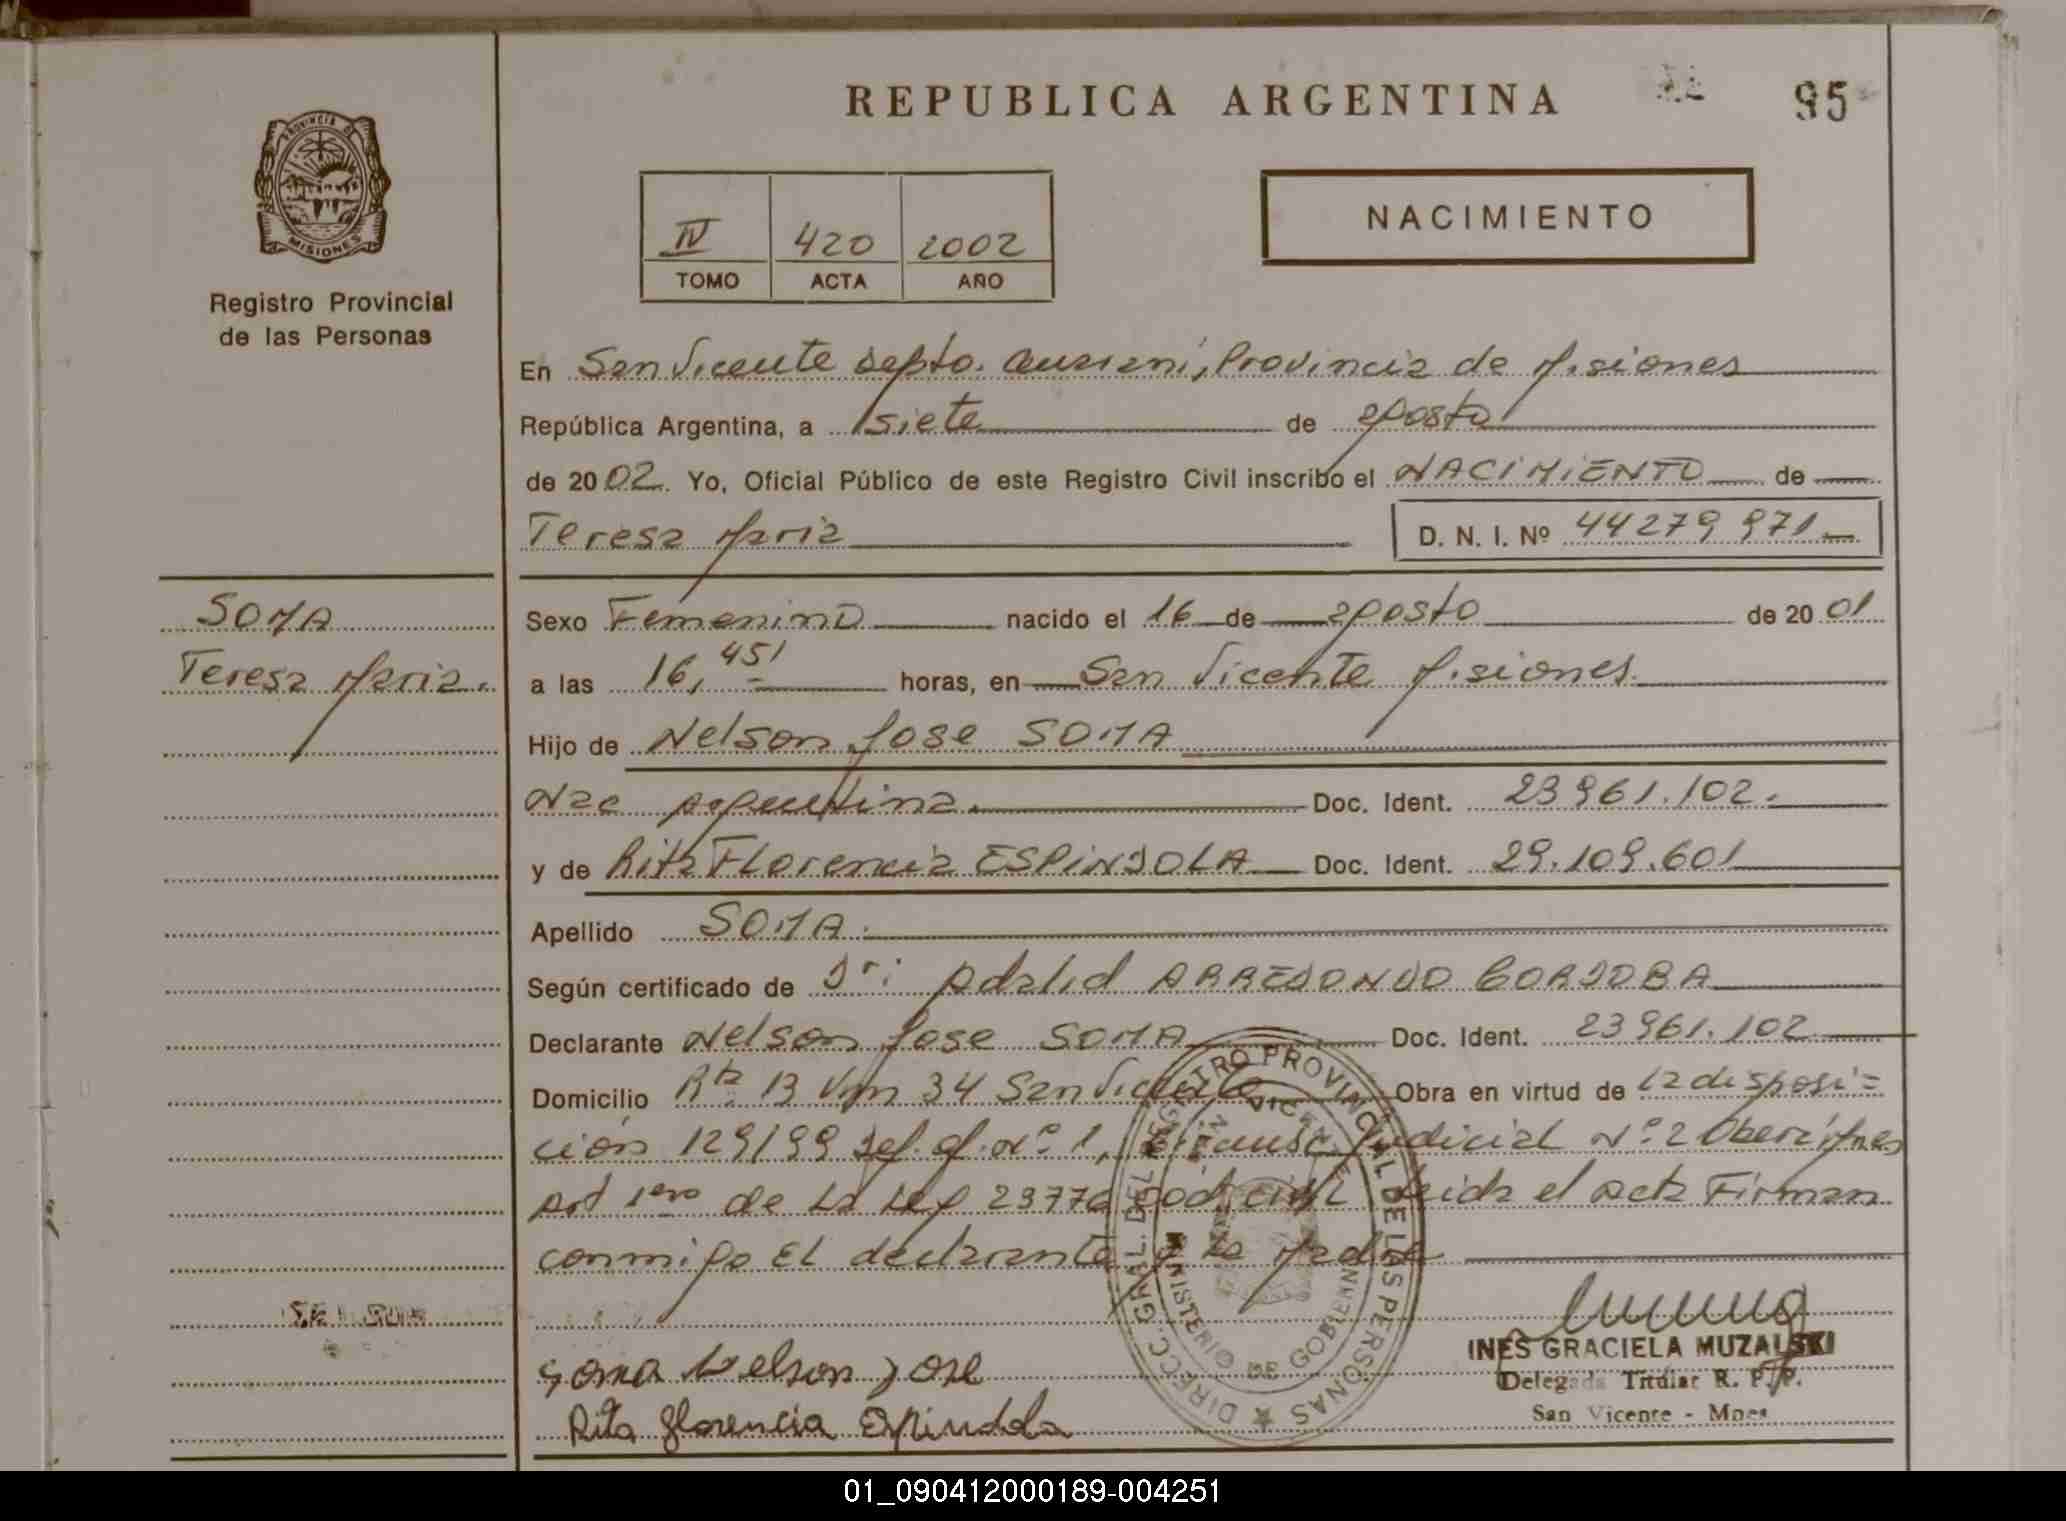 REPUBLICA ARGENTINA
95
PROVINCIA DE
MISIONES
Registro Provincial
de las Personas
IV 420 2002
TOMO ACTA AÑO
NACIMIENTO
En San Vicente Depto. Guarani, Provincia de Misiones
República Argentina, a siete de agosto
de 2002. Yo, Oficial Público de este Registro Civil inscribo el NACIMIENTO de
Teresa Maria D. N. I. Nº 44279 971
SOMA
Teresa Maria.
Sexo Femenino nacido el 16 de agosto de 2001
a las 16,45' horas, en San Vicente Misiones.
Hijo de Nelson Jose SOMA
Nac Argentina. Doc. Ident. 23961.102.
y de Rita Florencia ESPINDOLA Doc. Ident. 29.109.601
Apellido SOMA.
Según certificado de Dr: Adalid ARREDONDO CORDOBA
Declarante Nelson Jose SOMA Doc. Ident. 23961.102
Domicilio Rta 13 Km 34 San Vicente Obra en virtud de la disposi=
ción 129/99 Def. of. Nº 1, Judicial Nº 2 Obera Mnes
Art 1ero de La Ley 23776 Leida el acta Firman
conmigo El declarante y la Madre
Soma Nelson Jose
Rita Florencia Espindola
DIRECC. GRAL. DEL REGISTRO PROVINCIAL DE LAS PERSONAS
SAN VICENTE
MINISTERIO DE GOBIERNO
INES GRACIELA MUZALSKI
Delegada Titular R. P. P.
San Vicente - Mnes
01_090412000189-004251